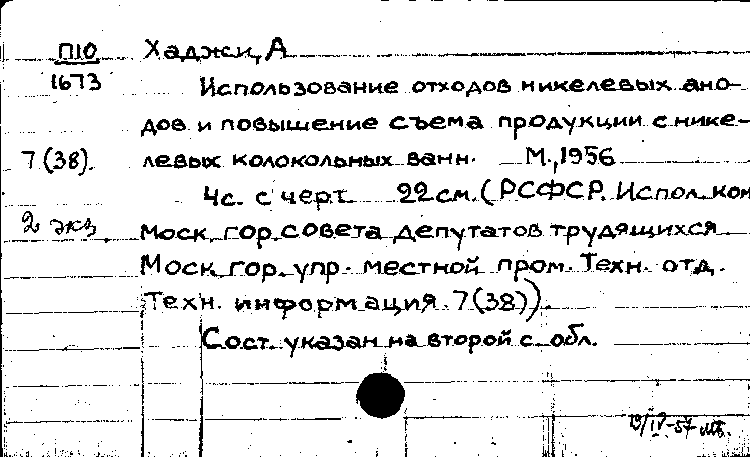 П10 Хаджи, А
1673 Использование отходов никелевых ано-
дов и повышение съема продукции с нике-
7(38). левых колокольных ванн. М., 1956
4с. с черт. 22см. (РСФСР. Испол. ком
2 экз. Моск. гор. совета депутатов трудящихся.
Моск. гор. упр. местной пром. Техн. отд.
Техн. информация. 7(38)).
Сост. указан на второй с. обл.